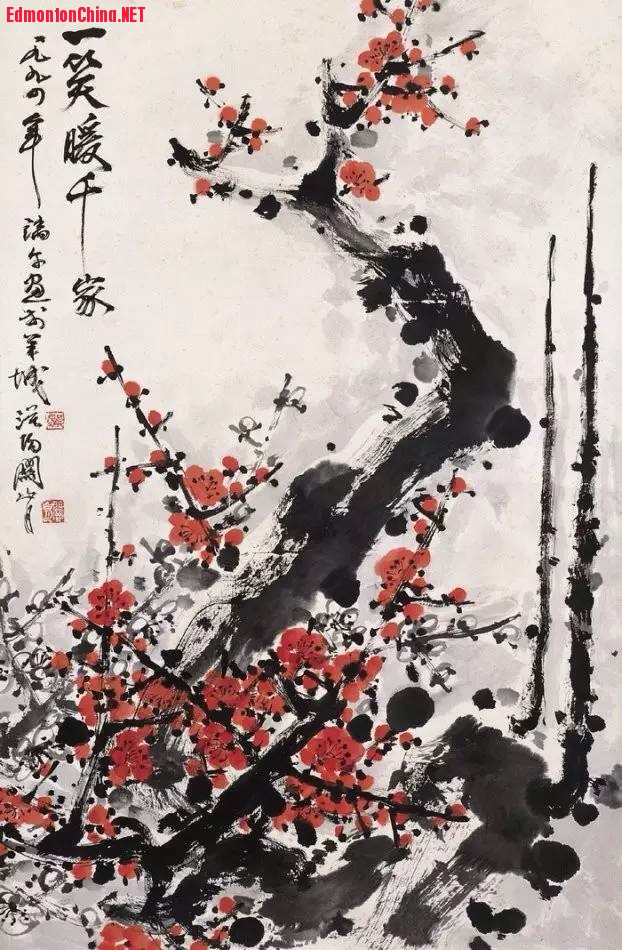 EdmontonChina.NET
一笑暖千家
一九九四年 端午畫於羊城 漠陽關山月